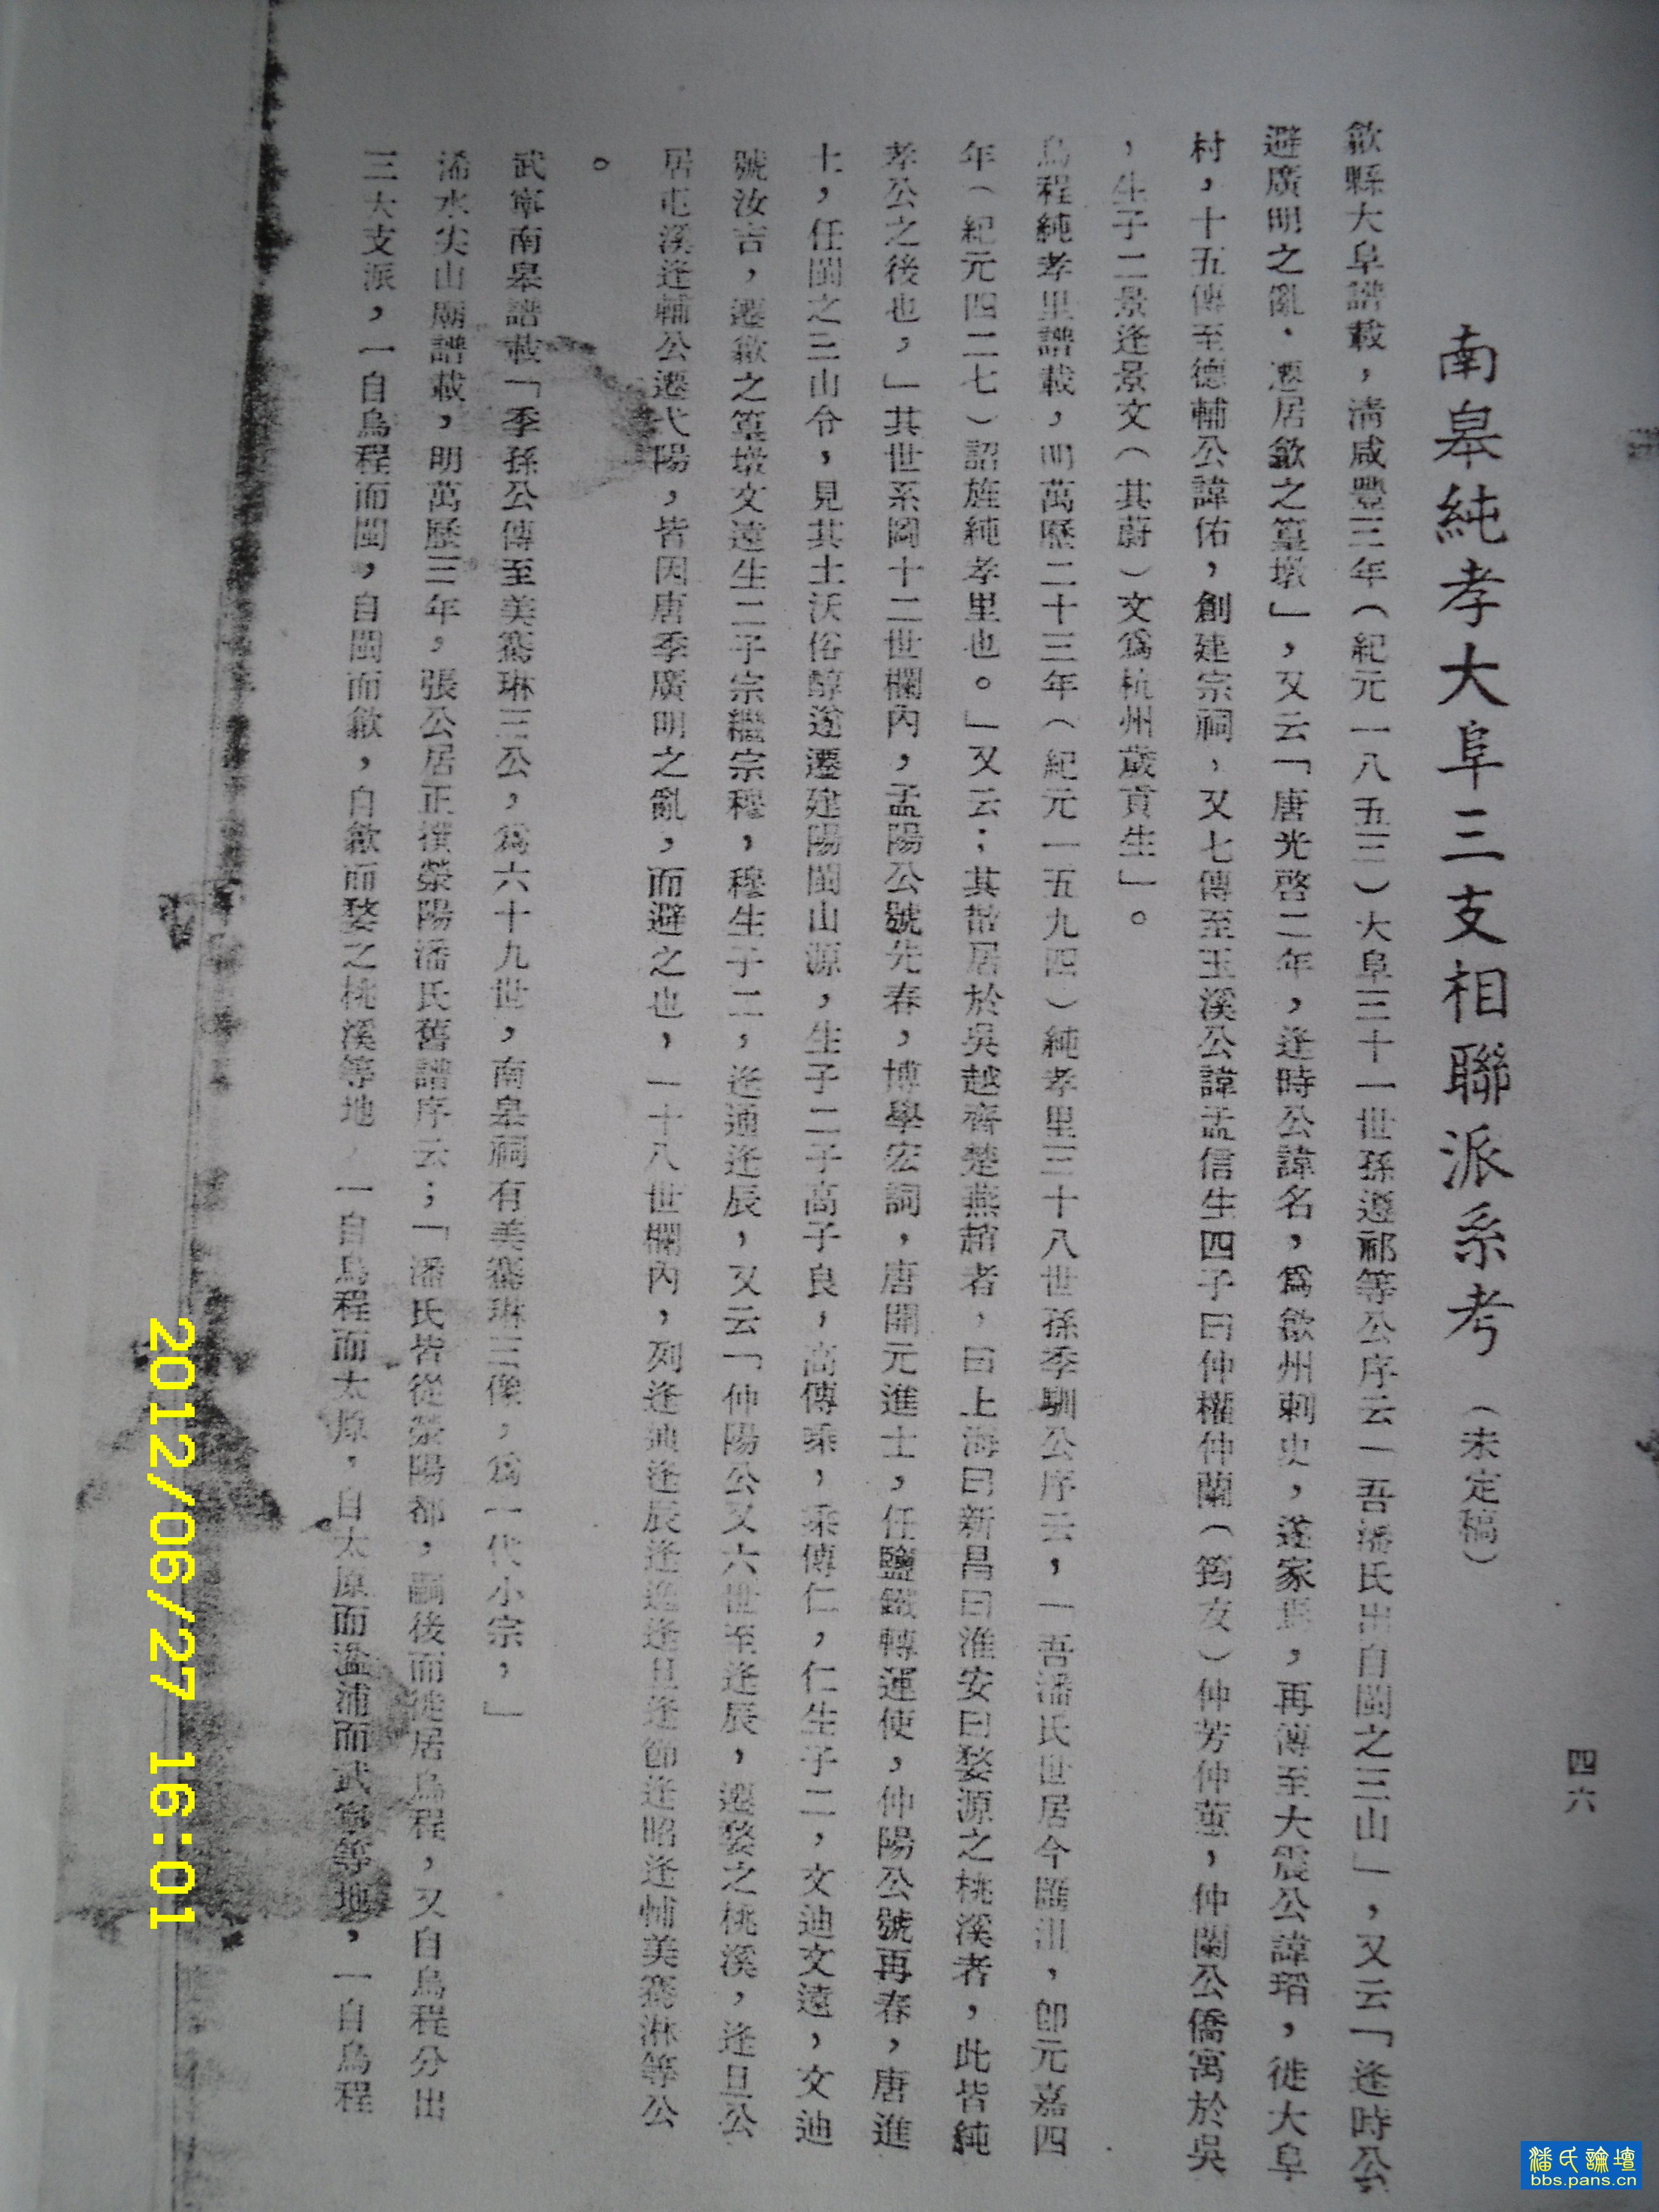 南皋純孝大阜三支相聯派系考（未定稿）
四六
歙縣大阜譜載，清咸豐三年（紀元一八五三）大阜三十一世孫遵祁等公序云「吾潘氏出自閩之三山」，又云「逢時公
避廣明之亂．遷居歙之篁墩」，又云「唐光啓二年，逢時公諱名，爲歙州刺史，遂家焉，再傳至大震公諱瑫，徙大阜
村，十五傳至德輔公諱佑，創建宗祠，又七傳至玉溪公諱孟信生四子曰仲權仲蘭（筠友）仲芳仲蕙，仲蘭公僑寓於吳
，生子二景逢景文（其蔚）文爲杭州歲貢生」。
烏程純孝里譜載，明萬歷二十三年（紀元一五九四）純孝里三十八世孫季馴公序云，「吾潘氏世居今匯沮，卽元嘉四
年（紀元四二七）詔旌純孝里也。」又云；其散居於吳越齊楚燕趙者，曰上海曰新昌曰淮安曰婺源之桃溪者，此皆純
孝公之後也，」其世系圖十二世欄內，孟陽公號先春，博學宏詞，唐開元進士，任鹽鐵轉運使，仲陽公號再春，唐進
士，任閩之三山令，見其土沃俗醇遂遷建陽閩山源，生子二子高子良，高傳乘，乘傳仁，仁生子二，文迪文遠，文迪
號汝吉，遷歙之篁墩文遠生二子宗繼宗穆，穆生子二，逢通逢辰，又云「仲陽公又六世至逢辰，遷婺之桃溪，逢旦公
居屯溪逢輔公遷弋陽，皆因唐季廣明之亂，而避之也，一十八世欄內，列逢通逢辰逢逸逢旦逢節逢昭逢輔美騫淋等公
。
武寧南皋譜載「季孫公傳至美騫琳三公，爲六十九世，南皋祠有美騫琳三像，爲一代小宗，」
浠水尖山廟譜載，明萬歷三年，張公居正撰滎陽潘氏舊譜序云；「潘氏皆從滎陽郡，嗣後而徙居烏程，又自烏程分出
三大支派，一自烏程而閩，自閩而歙，自歙而婺之桃溪等地，一自烏程而太原，自太原而溢浦而武寧等地，一自烏程
2012/06/27 16:01
潘氏論壇
bbs.pans.cn